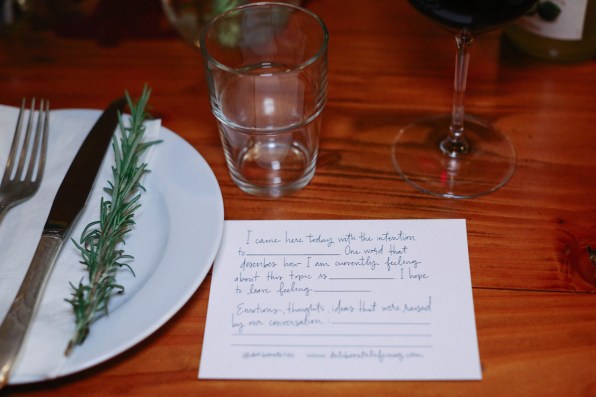 I came here today with the intention
to ____________. One word that
describes how I am currently feeling
about this topic is ____________. I hope
to leave feeling ____________.
Emotions, thoughts, ideas that were raised
by our conversation: ____________